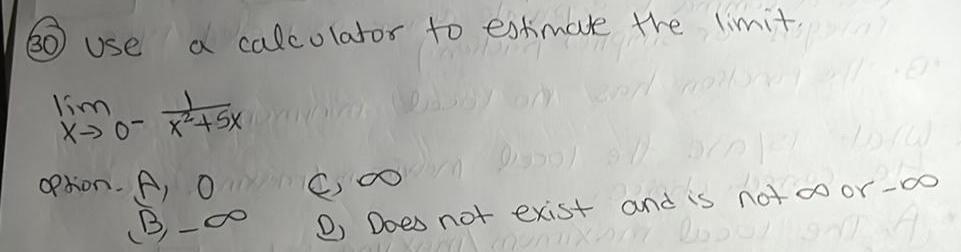 30 Use a calculator to estimate the limit.
lim x→0⁻ 1/(x²+5x)
option- A, 0 C, ∞
B, -∞ D, Does not exist and is not ∞ or -∞